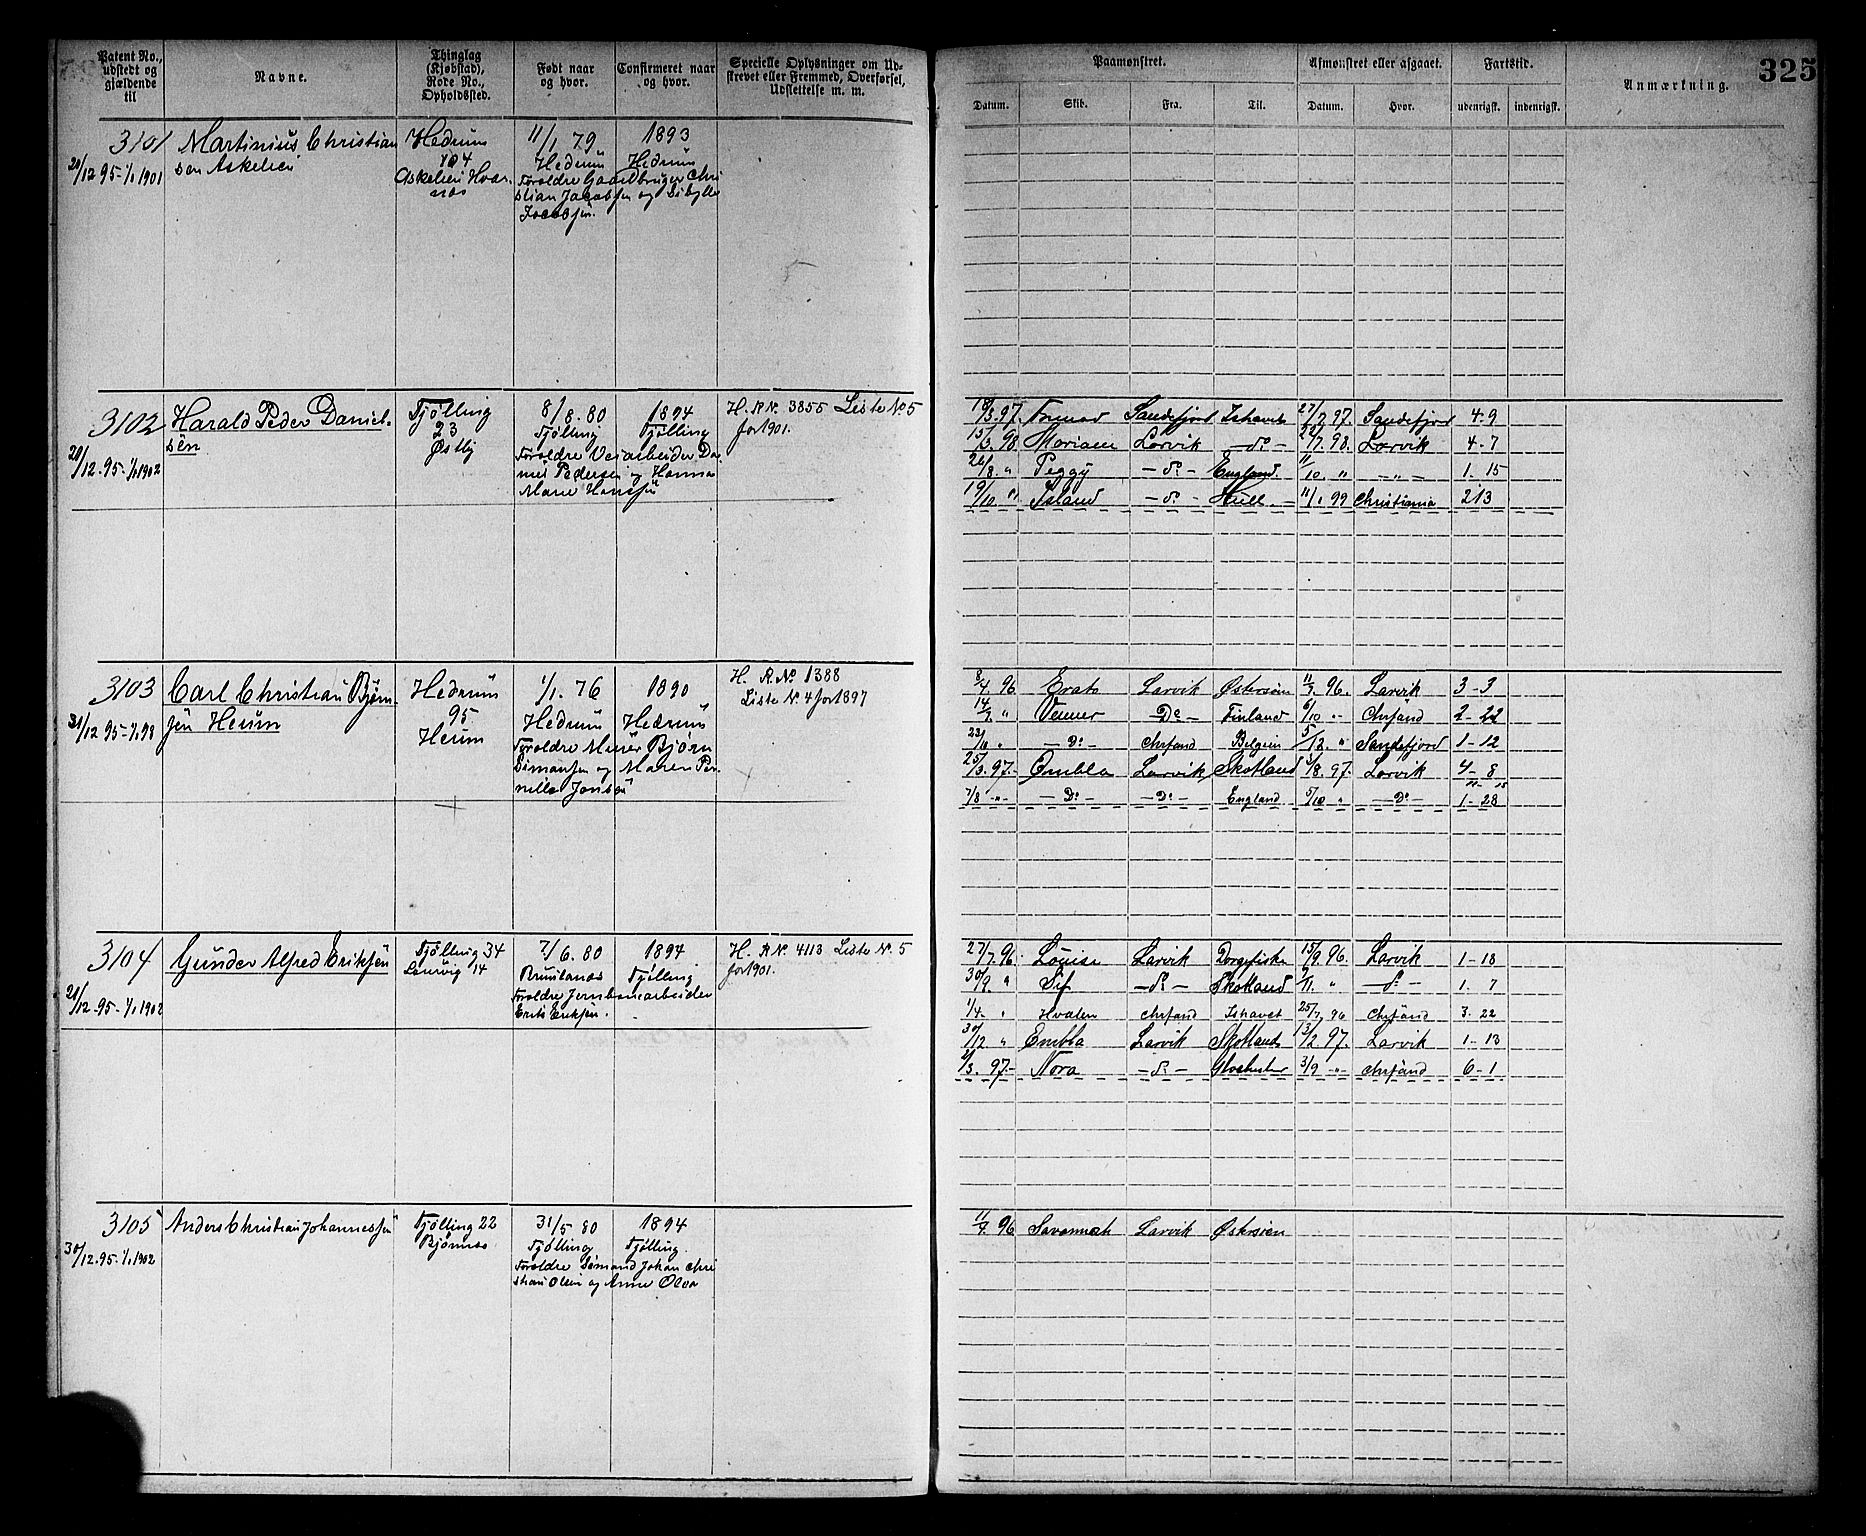 325
Patent No., udstedt og gjældende til
Navne.
Thinglag (Kjøbstad), Rode No., Opholdssted.
Født naar og hvor.
Confirmeret naar og hvor.
Specielle Oplysninger om Udskrevet eller Fremmed, Overførsel, Udslettelse m. m.
Paamønstret.
Afmønstret eller afgaaet.
Fartstid.
Anmærkning.
Datum. Skib. Fra. Til. Datum. Hvor. udenrigsk. indenrigsk.
3101 Martinius Christian Hedrum 11/1 79 1893
21/12 95-1/1 1901 sen Askelien 104 Hedrum Hedrum
Askelien Hvar-
næs
Foreldre Gaardbruger Chri
stian Jacobsen og Sibylle
Jacobsen.
3102 Harald Peder Daniel- Tjølling 8/8. 80 1894 H. R Nº. 3855 Liste Nº 5
sen 23 Tjølling Tjølling for 1901.
21/12. 95-1/1 1902 Østby
Foreldre Verarbeider Da-
niel Pedersen og Hanna
Marie Hansen
18/3 97. Sandefjord Ishavet 27/7 97. Sandefjord 4-9
15/3 98 Mariane Larvik -do- 22/7. 98. Larvik 4-7
26/8. " Peggy -do- England. 11/10. " -"- 1. 15
19/10 " Island -do- Hull 11/1 99 Christiania 2 13
3103 Carl Christian Bjørn- Hedrum 1/1. 76 1890 H. R. Nº. 1388
31/12 95-1/1 98 sen Herum 95 Hedrum Hedrum Liste Nº. 4 for 1897
Herum
Foreldre Murer Bjørn
Simansen og Maren Per-
nille Jonsen
8/4. 96 Erato Larvik Østersøen 11/7. 96. Larvik 3-3
14/7 " Venner -Do- Finland 6/10 " Chrsand 2-22
23/10 " -Do- Chrsand Belgien 5/12. " Sandefjord 1-12
25/3. 97. Embla Larvik Skotland 3/8. 97. Larvik 4-8
7/8 -"- -Do- -Do- England 5/10 " -Do- 1-28
3104 Gunder Alfred Eriksen Tjølling 34 7/6. 80 1894 H. R Nº. 4113 Liste Nº. 5
21/12. 95-1/1 1902 Laurvig 14 Brunlanæs Tjølling for 1901.
Foreldre Jernbanearbeider
Erik Eriksen.
27/7. 96. Louise Larvik Dorgefiske 15/9. 96. Larvik 1-18
30/9. " Sif -do- Skotland 7/11. " -do- 1. 7
1/4. " Hvalen Chrsand Ishavet 25/7. 96 Chrsand 3. 22
30/12 " Embla Larvik Skotland 13/2. 97. Larvik 1-13
2/3. 97- Nora -do- 3/9 -"- Chrsand 6-1
3105 Anders Christian Johannessen Tjølling 22 31/5 80 1894
30/12. 95-1/1 1902 Bjønnes Tjølling Tjølling.
Foreldre Sømand Johan Chri
stian Olsen og Anne Olea
11/4. 96 Savannah Larvik Østersøen